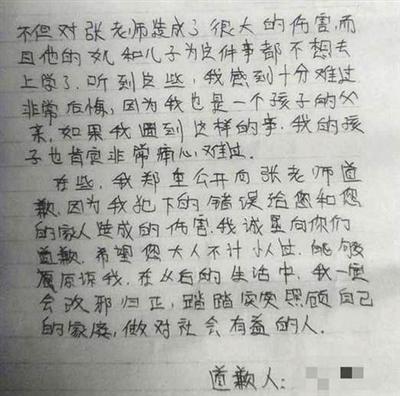 不但对张老师造成了很大的伤害，而
且他的女儿和儿子为这件事都不想去
上学了。听到这些，我感到十分难过
非常后悔，因为我也是一个孩子的父
亲，如果我遇到这样的事，我的孩
子也肯定非常痛心，难过。
在些，我郑重公开向张老师道
歉，因为我犯下的错误给您和您
的家人造成的伤害，我诚恳向你们
道歉，希望您大人不计小人过，能够
原谅我，在以后的生活中，我一定
会改邪归正，踏踏实实照顾自己
的家庭，做对社会有益的人。
道歉人：